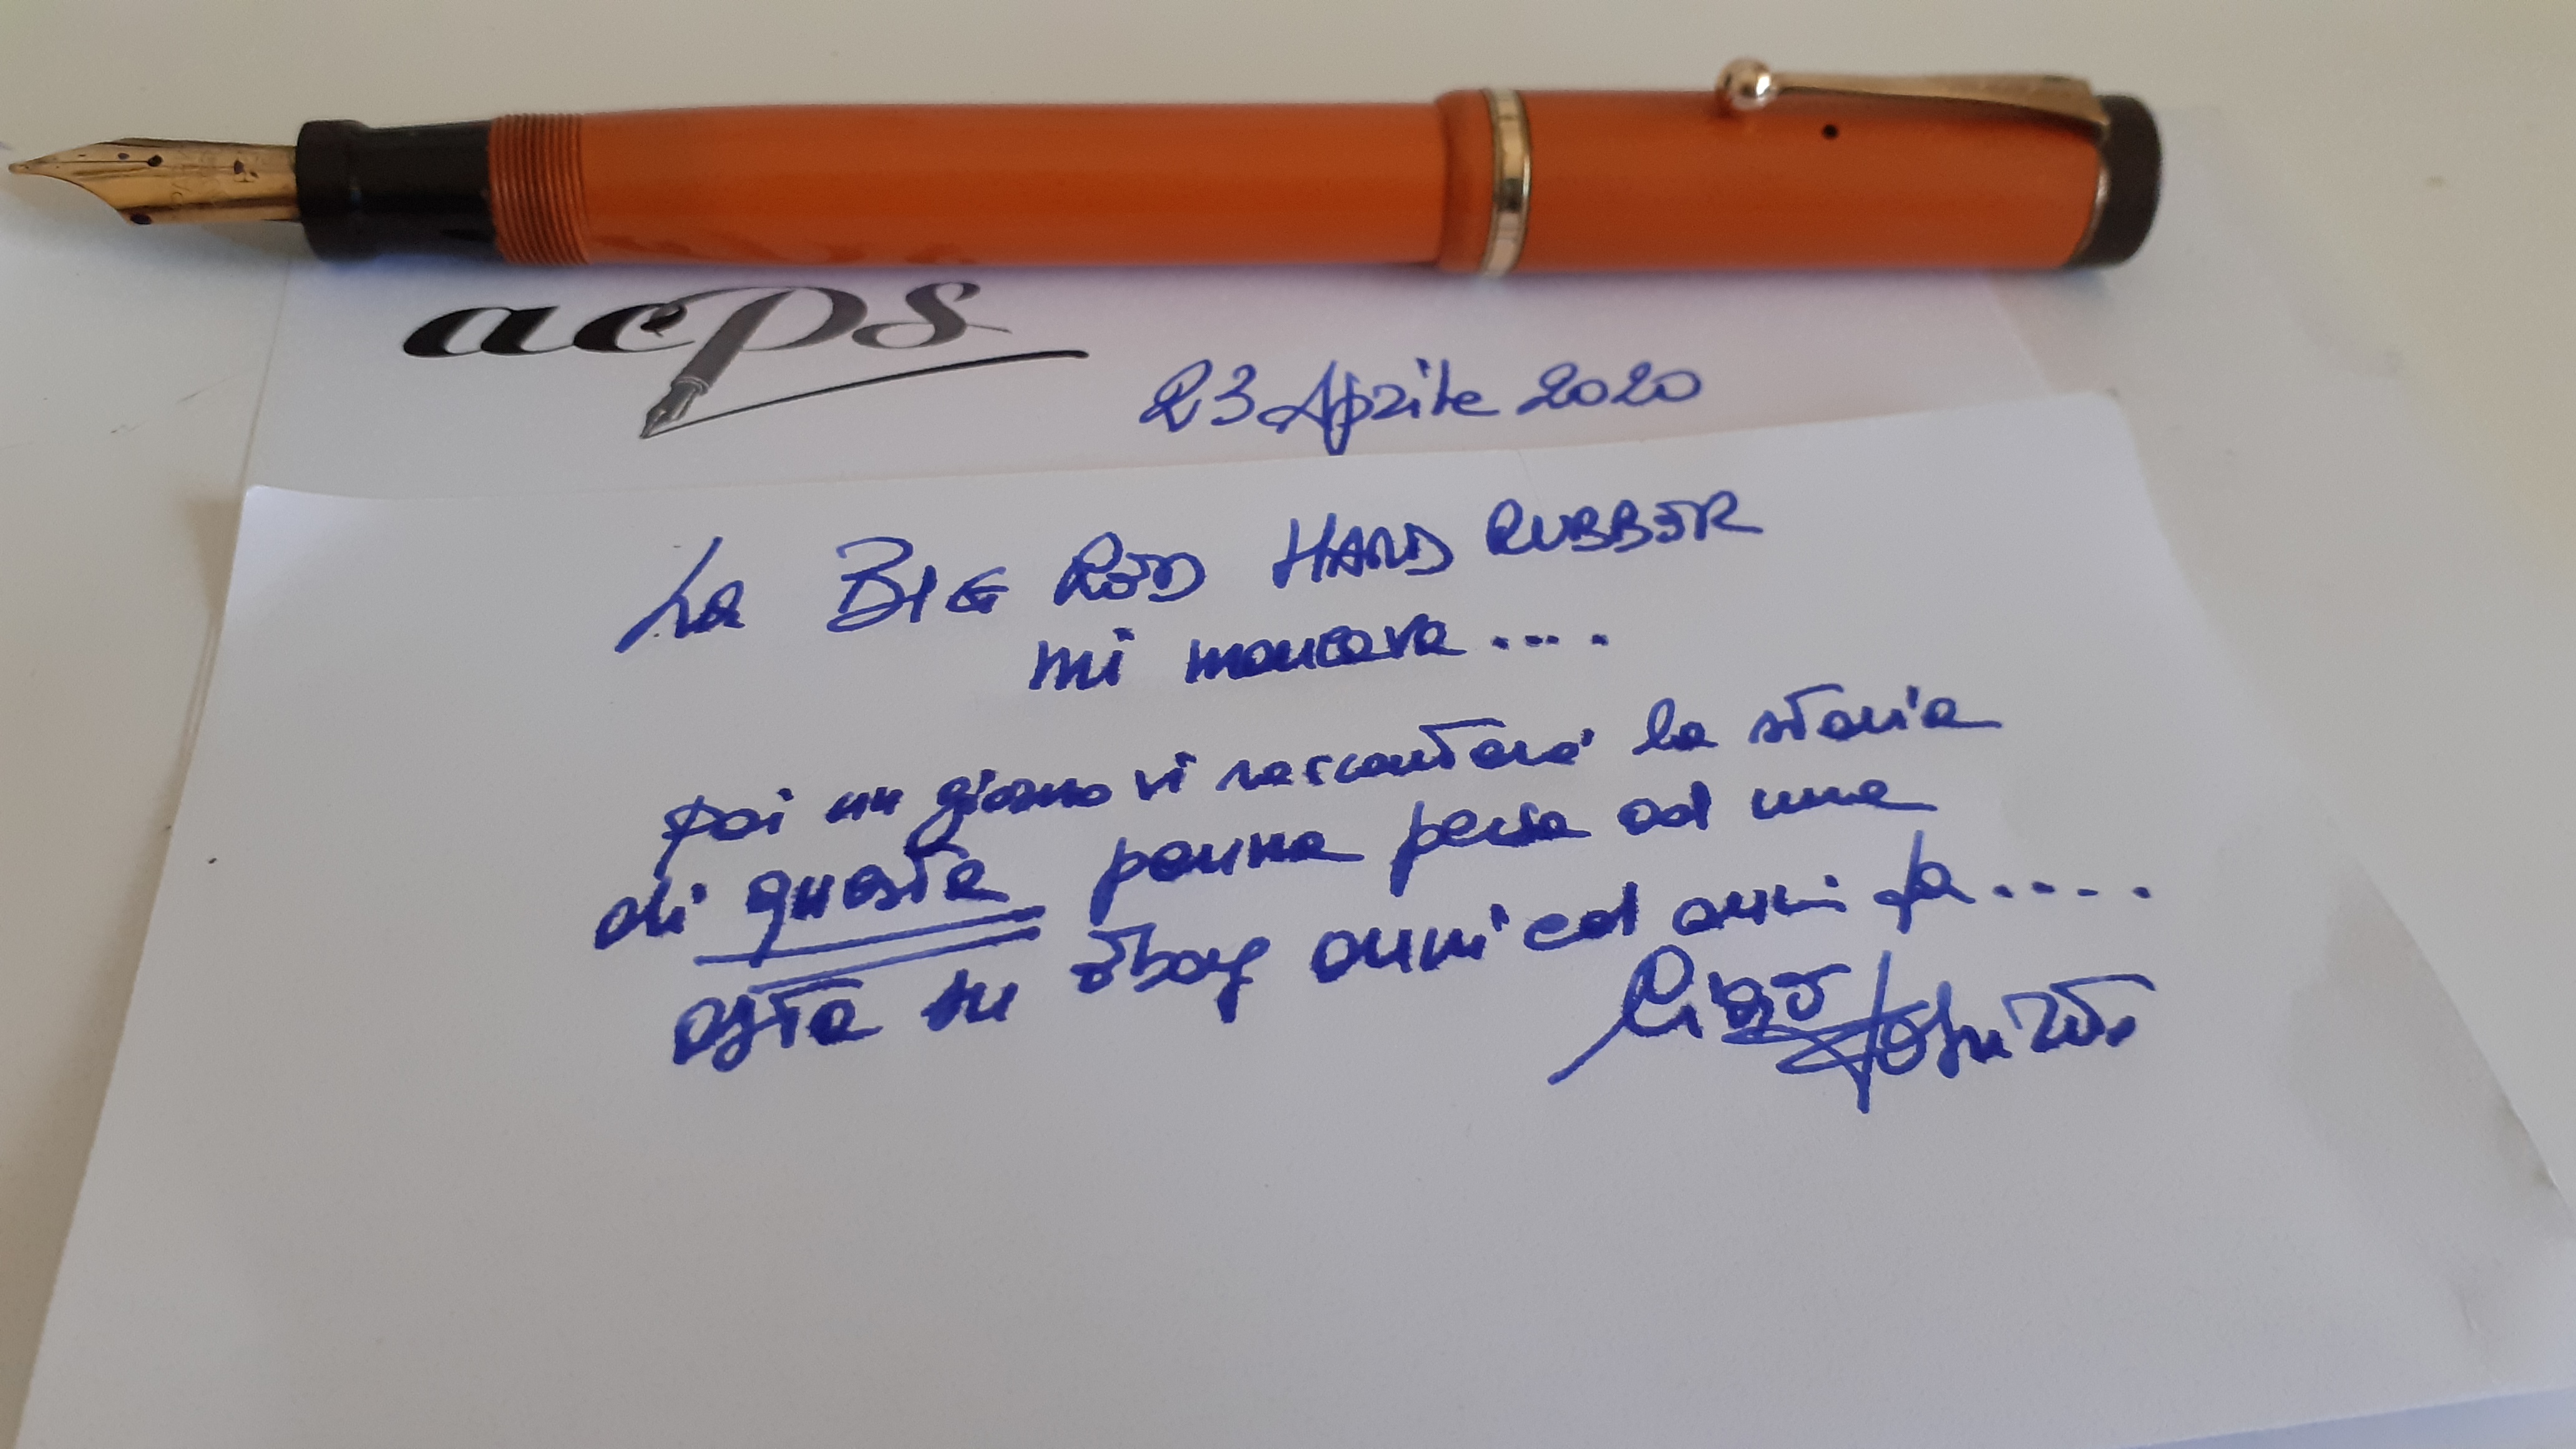 acps
23 Aprile 2020
La BIG ROD HARD RUBBER
mi mancava....
poi un giorno vi racconterò la storia
di questa penna persa ad una
asta su Ebay anni ed anni fa....